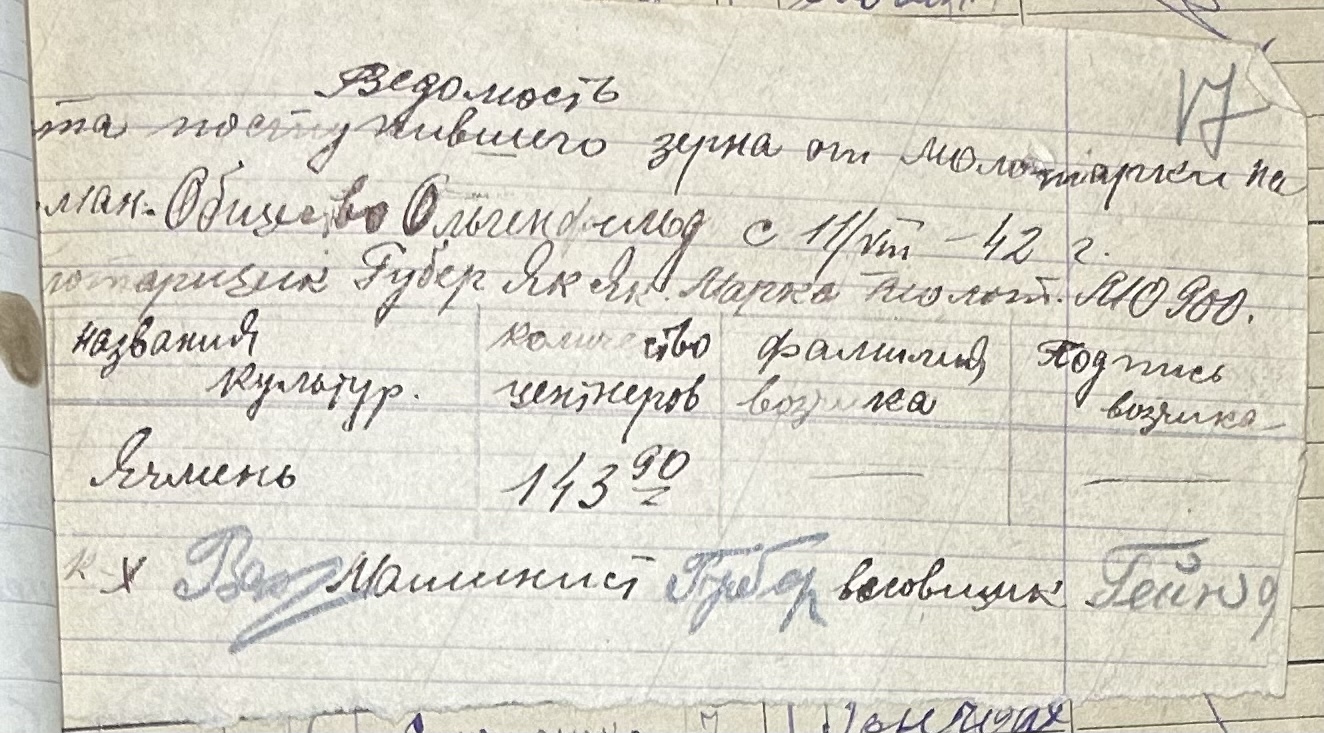 17
Ведомость
та поступившего зерна от молотарки на
ман. Общество Ольгенфельд с 11/VIII – 42 г.
лотарщик Губер Як Як. Марка молот. МО 900.
названия культур. количество центнеров фамилия возчика Подпись возчика
Ячмень 143 90 — —
к-х Машинист Губер весовщик